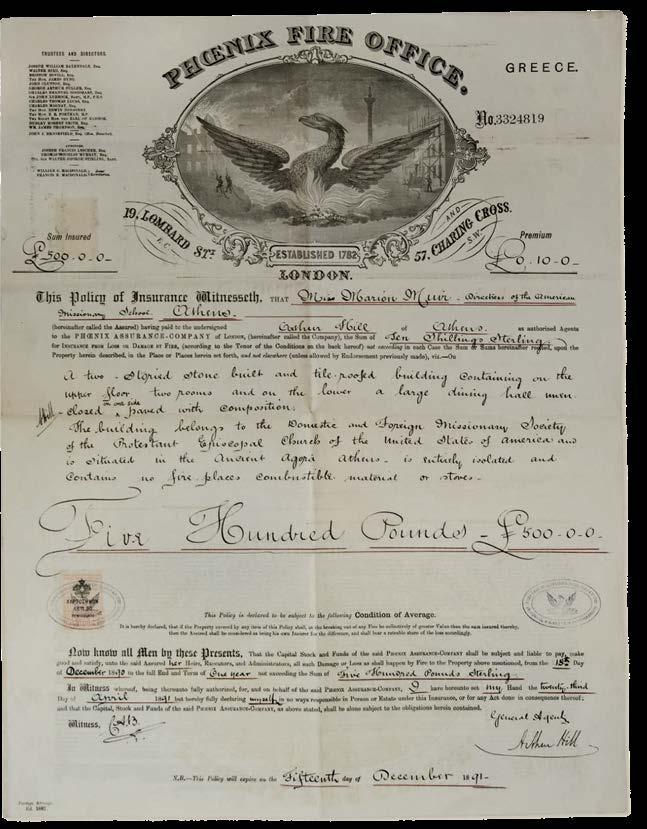 TRUSTEES AND DIRECTORS.
JOSEPH WILLIAM BAXENDALE, Esq.
BRISTOW BOVILL, Esq.
THE HON. JAMES BYNG.
JOHN CLUTTON, Esq.
GEORGE ARTHUR FULLER, Esq.
CHARLES EMANUEL GOODHART, Esq.
SIR JOHN LUBBOCK, BART., M.P., F.R.S.
CHARLES THOMAS LUCAS, Esq.
CHARLES MAGNAY, Esq.
DUDLEY ROBERT SMITH, Esq.
WM. JAMES THOMPSON, Esq.
JOHN J. BROOMFIELD, Esq.
PHŒNIX FIRE OFFICE.
GREECE.
No. 3324819
19, LOMBARD ST. E.C.
AND
57, CHARING CROSS. S.W.
ESTABLISHED 1782
LONDON.
Sum Insured
£500.0.0
Premium
£0.10.0
This Policy of Insurance Witnesseth, THAT Miss Marion Muir - Directress of the American
Missionary School. Athens.
(hereinafter called the Assured) having paid to the undersigned Arthur Hill of Athens. as authorised Agents
to the PHŒNIX ASSURANCE-COMPANY of LONDON, (hereinafter called the Company), the Sum of Ten Shillings Sterling
for INSURANCE FROM LOSS OR DAMAGE BY FIRE, (according to the Tenor of the Conditions on the back hereof) not exceeding in each Case the Sum or Sums hereinafter recited, upon the
Property herein described, in the Place or Places herein set forth, and not elsewhere (unless allowed by Endorsement previously made), viz.—On
A two-Storied Stone built and tile-roofed building containing on the
upper floor two rooms and on the lower a large dining hall unen-
closed on one side paved with composition.
The building belongs to the Domestic and Foreign Missionary Society
of the Protestant Episcopal Church of the United States of America and
is Situated in the Ancient Agora Athens - is entirely isolated and
Contains no fire places combustible material or stoves -
Five Hundred Pounds - £500.0.0.
This Policy is declared to be subject to the following Condition of Average.
It is hereby declared, that if the Property covered by any item of this Policy shall, at the breaking out of any Fire be collectively of greater Value than the sum insured thereby,
then the Assured shall be considered as being his own Insurer for the difference, and shall bear a rateable share of the loss accordingly.
Now know all Men by these Presents, That the Capital Stock and Funds of the said PHŒNIX ASSURANCE-COMPANY shall be subject and liable to pay, make
good and satisfy, unto the said Assured her Heirs, Executors, and Administrators, all such Damage or Loss as shall happen by Fire to the Property above mentioned, from the 15th Day
of December 1890 to the full End and Term of One year not exceeding the Sum of Five Hundred Pounds Sterling
In Witness whereof, being thereunto fully authorised, for, and on behalf of the said PHŒNIX ASSURANCE-COMPANY, I have hereunto set my Hand the twenty-third
Day of April 1891 but hereby fully declaring myself in no ways responsible in Person or Estate under this Insurance, or for any Act done in consequence thereof;
and that the Capital, Stock and Funds of the said PHŒNIX ASSURANCE-COMPANY, as above stated, shall be alone subject to the obligations herein contained.
Witness,
General Agent
Arthur Hill
N.B.—This Policy will expire on the Fifteenth day of December 1891-